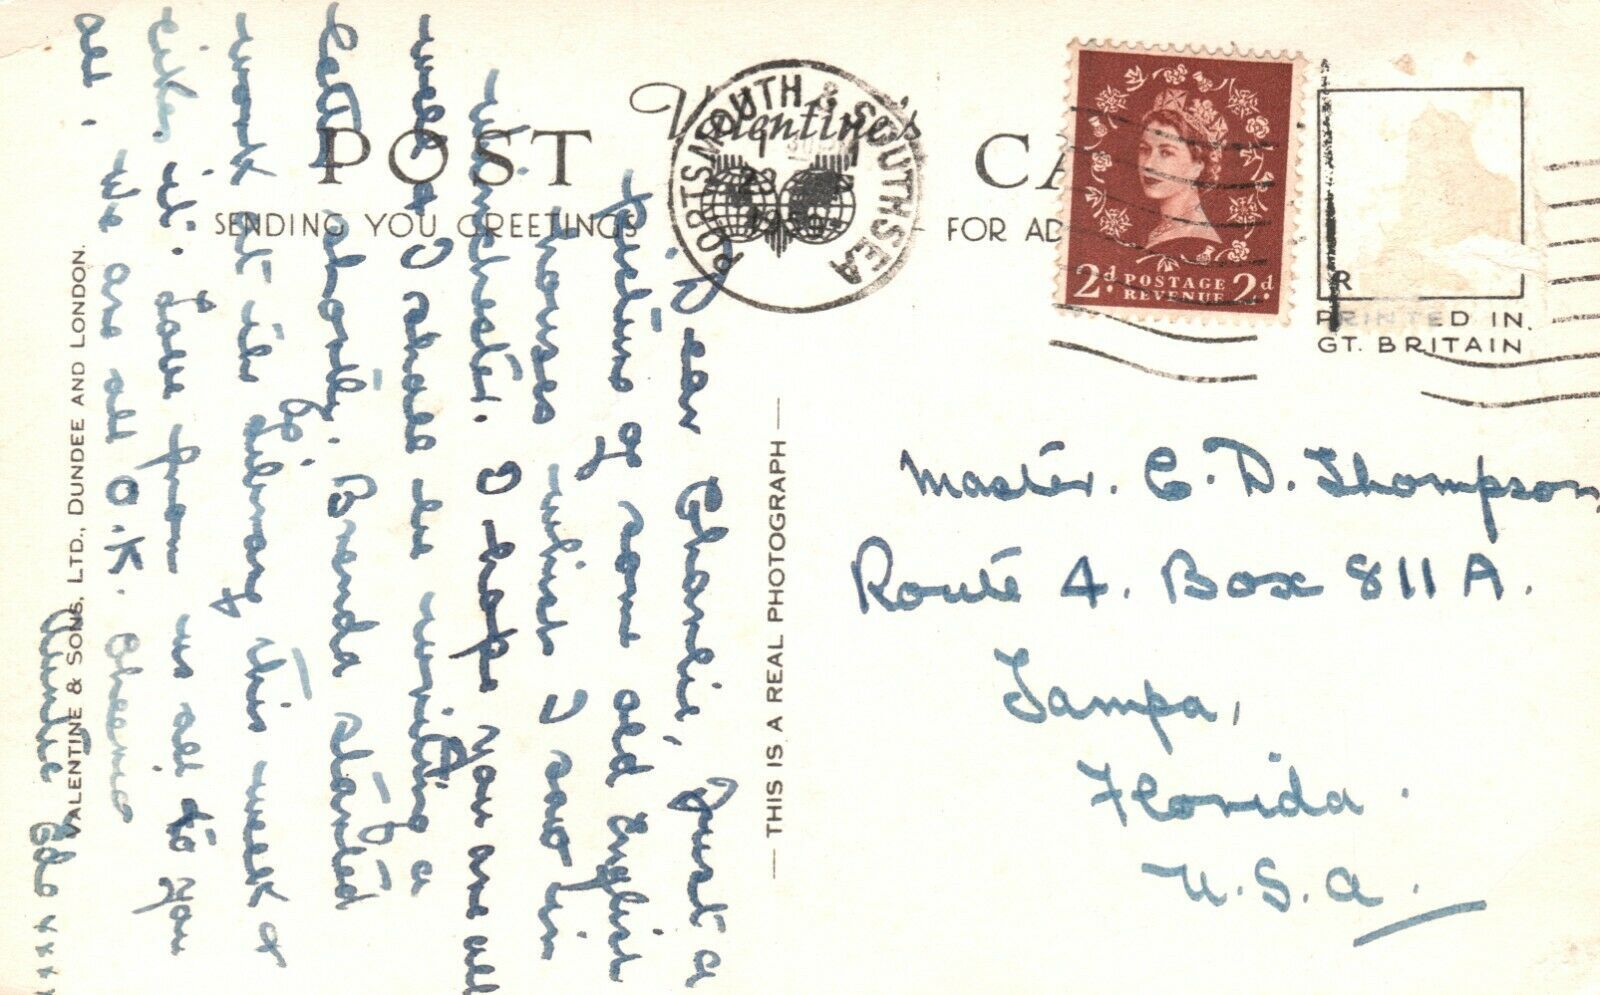 Valentine's
POST CA
SENDING YOU GREETINGS
FOR AD
PORTSMOUTH & SOUTHSEA
2d. POSTAGE REVENUE 2d.
R
PRINTED IN
GT. BRITAIN
Dear Charlie, Just a
picture of some old English
houses which I saw in
Winchester. I hope you are all
well & I shall be writing a
letter shortly. Brenda started
work at the library this week &
likes it. Love from us all to you
all. We are all O.K. Cheerio
Auntie xxxx
VALENTINE & SONS, LTD., DUNDEE AND LONDON.
THIS IS A REAL PHOTOGRAPH
Master. C. D. Thompson,
Route 4. Box 811A.
Tampa,
Florida.
U.S.A.